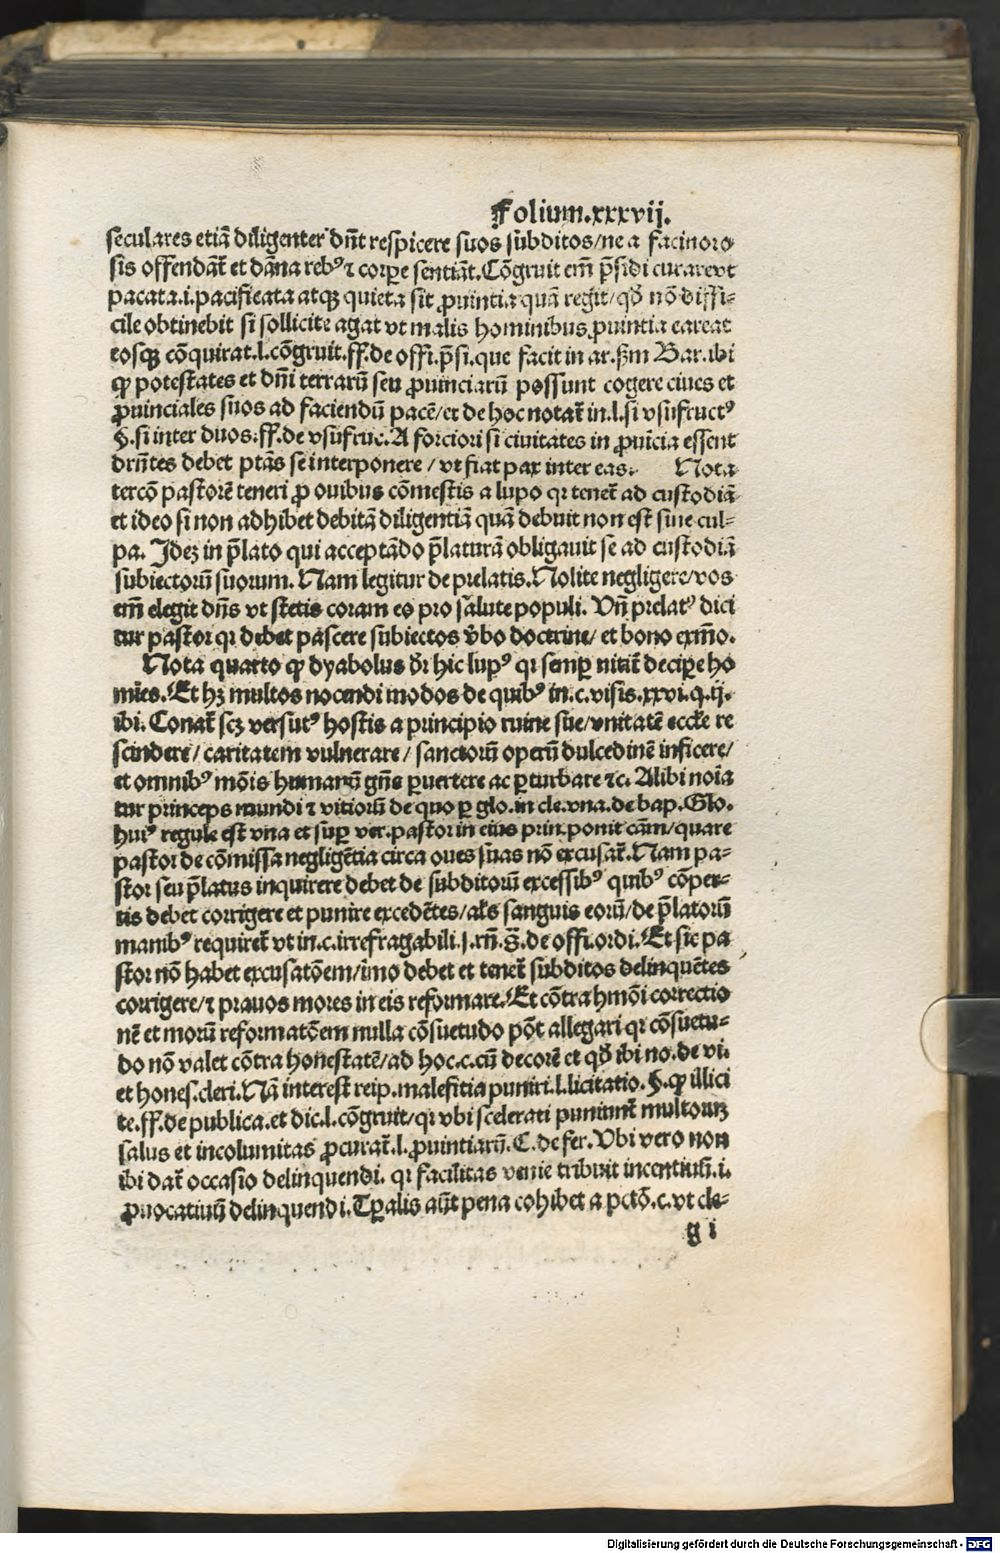 Folium.xxxvij.
seculares etiã diligenter dn̄t respicere suos subditos/ne a facinoro
sis offendãt̃ et dãna rebꝰ ⁊ corꝑe sentiãt. Cõgruit em̄ p̃sidi curare vt
pacata.i.pacificata atqꝫ quieta sit ꝓuintia quã regit/qð nõ diffi⸗
cile obtinebit si sollicite agat vt malis hominibus ꝓuintia careat
eosqꝫ cõquirat.l.cõgruit.ff.de offi.p̃si.que facit in ar.ẞm Bar.ibi
ꝙ potestates et dñi terrarũ seu ꝓuinciarũ possunt cogere ciues et
ꝓuinciales suos ad faciendũ pacẽ/et de hoc notat̃ in.l.si vsufructꝰ
§.si inter duos.ff.de vsufruc. A forciori si ciuitates in ꝓuĩcia essent
drñtes debet ptãs se interponere/vt fiat pax inter eas. Nota
tercõ pastorẽ teneri ꝓ ouibus cõmestis a lupo qꝛ tenet̃ ad custodiã
et ideo si non adhibet debitã diligentiã quã debuit non est sine cul⸗
pa. Ideꝫ in p̃lato qui acceptãdo p̃laturã obligauit se ad custodiã
subiectorũ suorum. Nam legitur de prelatis. Nolite negligere/vos
em̄ elegit dñs vt stetis coram eo pro salute populi. Vñ prelatꝰ dici
tur pastor qꝛ debet pascere subiectos v̄bo doctrine/et bono exm̃o.
Nota quarto ꝙ dyabolus dr̃ hic lupꝰ qꝛ semꝑ nitit̃ deciꝑe ho
mĩes. Et hꝫ multos nocendi modos de quibꝰ in.c.visis.xxvi.q.ij.
ibi. Conat̃ scꝫ versutꝰ hostis a principio ruine sue/vnitatẽ eccl̃e re
scindere/caritatem vulnerare/sanctorũ operũ dulcedinẽ inficere/
et omnibꝰ mõis humanũ gñs ꝑuertere ac ꝑturbare ⁊c. Alibi noĩa
tur princeps mundi ⁊ vitiorũ de quo ꝑ glo.in cle.vna.de bap. Glo.
huiꝰ regule est vna et suꝑ ver.pastor in eius prin.ponit cãm/quare
pastor de cõmissa negligẽtia circa oues suas nõ excusat̃. Nam pa⸗
stor seu p̃latus inquirere debet de subditorũ excessibꝰ quibꝰ cõper⸗
tis debet corrigere et punire excedẽtes/al̃s sanguis eorũ/de p̃latorũ
manibꝰ requiret̃ vt in.c.irrefragabili.j.rñ.§.de offi.ordi. Et sic pa
stor nõ habet excusatõem/imo debet et tenet̃ subditos delinquẽtes
corrigere/⁊ prauos mores in eis reformare. Et cõtra hm̃õi correctio
nẽ et morũ reformatõem nulla cõsuetudo põt allegari qꝛ cõsuetu⸗
do nõ valet cõtra honestatẽ/ad hoc.c.cũ decorẽ et qð ibi no.de vi.
et hones.cleri. Nã interest reip.malefitia puniri.l.licitatio.§.ꝙ illici
te.ff.de publica.et dic.l.cõgruit/qꝛ vbi scelerati puniunt̃ multoruꝫ
salus et incolumitas ꝓcurat̃.l.ꝓuintiarũ.C.de fer. Vbi vero non
ibi dat̃ occasio delinquendi. qꝛ facilitas venie tribuit incentiuũ.i.
ꝓuocatiuũ delinquendi. Tꝑalis aũt pena cohibet a pctõ.c.vt cle⸗
g i
Digitalisierung gefördert durch die Deutsche Forschungsgemeinschaft - DFG